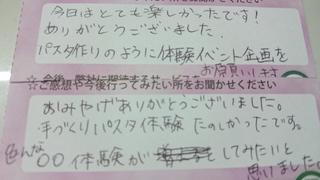 今日はとても楽しかったです！
ありがとうございました。
パスタ作りのように体験イベント企画を
お願いします
☆ご感想や今後行ってみたい所をお聞かせください
おみやげありがとうございました。
手づくりパスタ体験 たのしかったです。
色んな
○○体験が してみたいと
思いました。